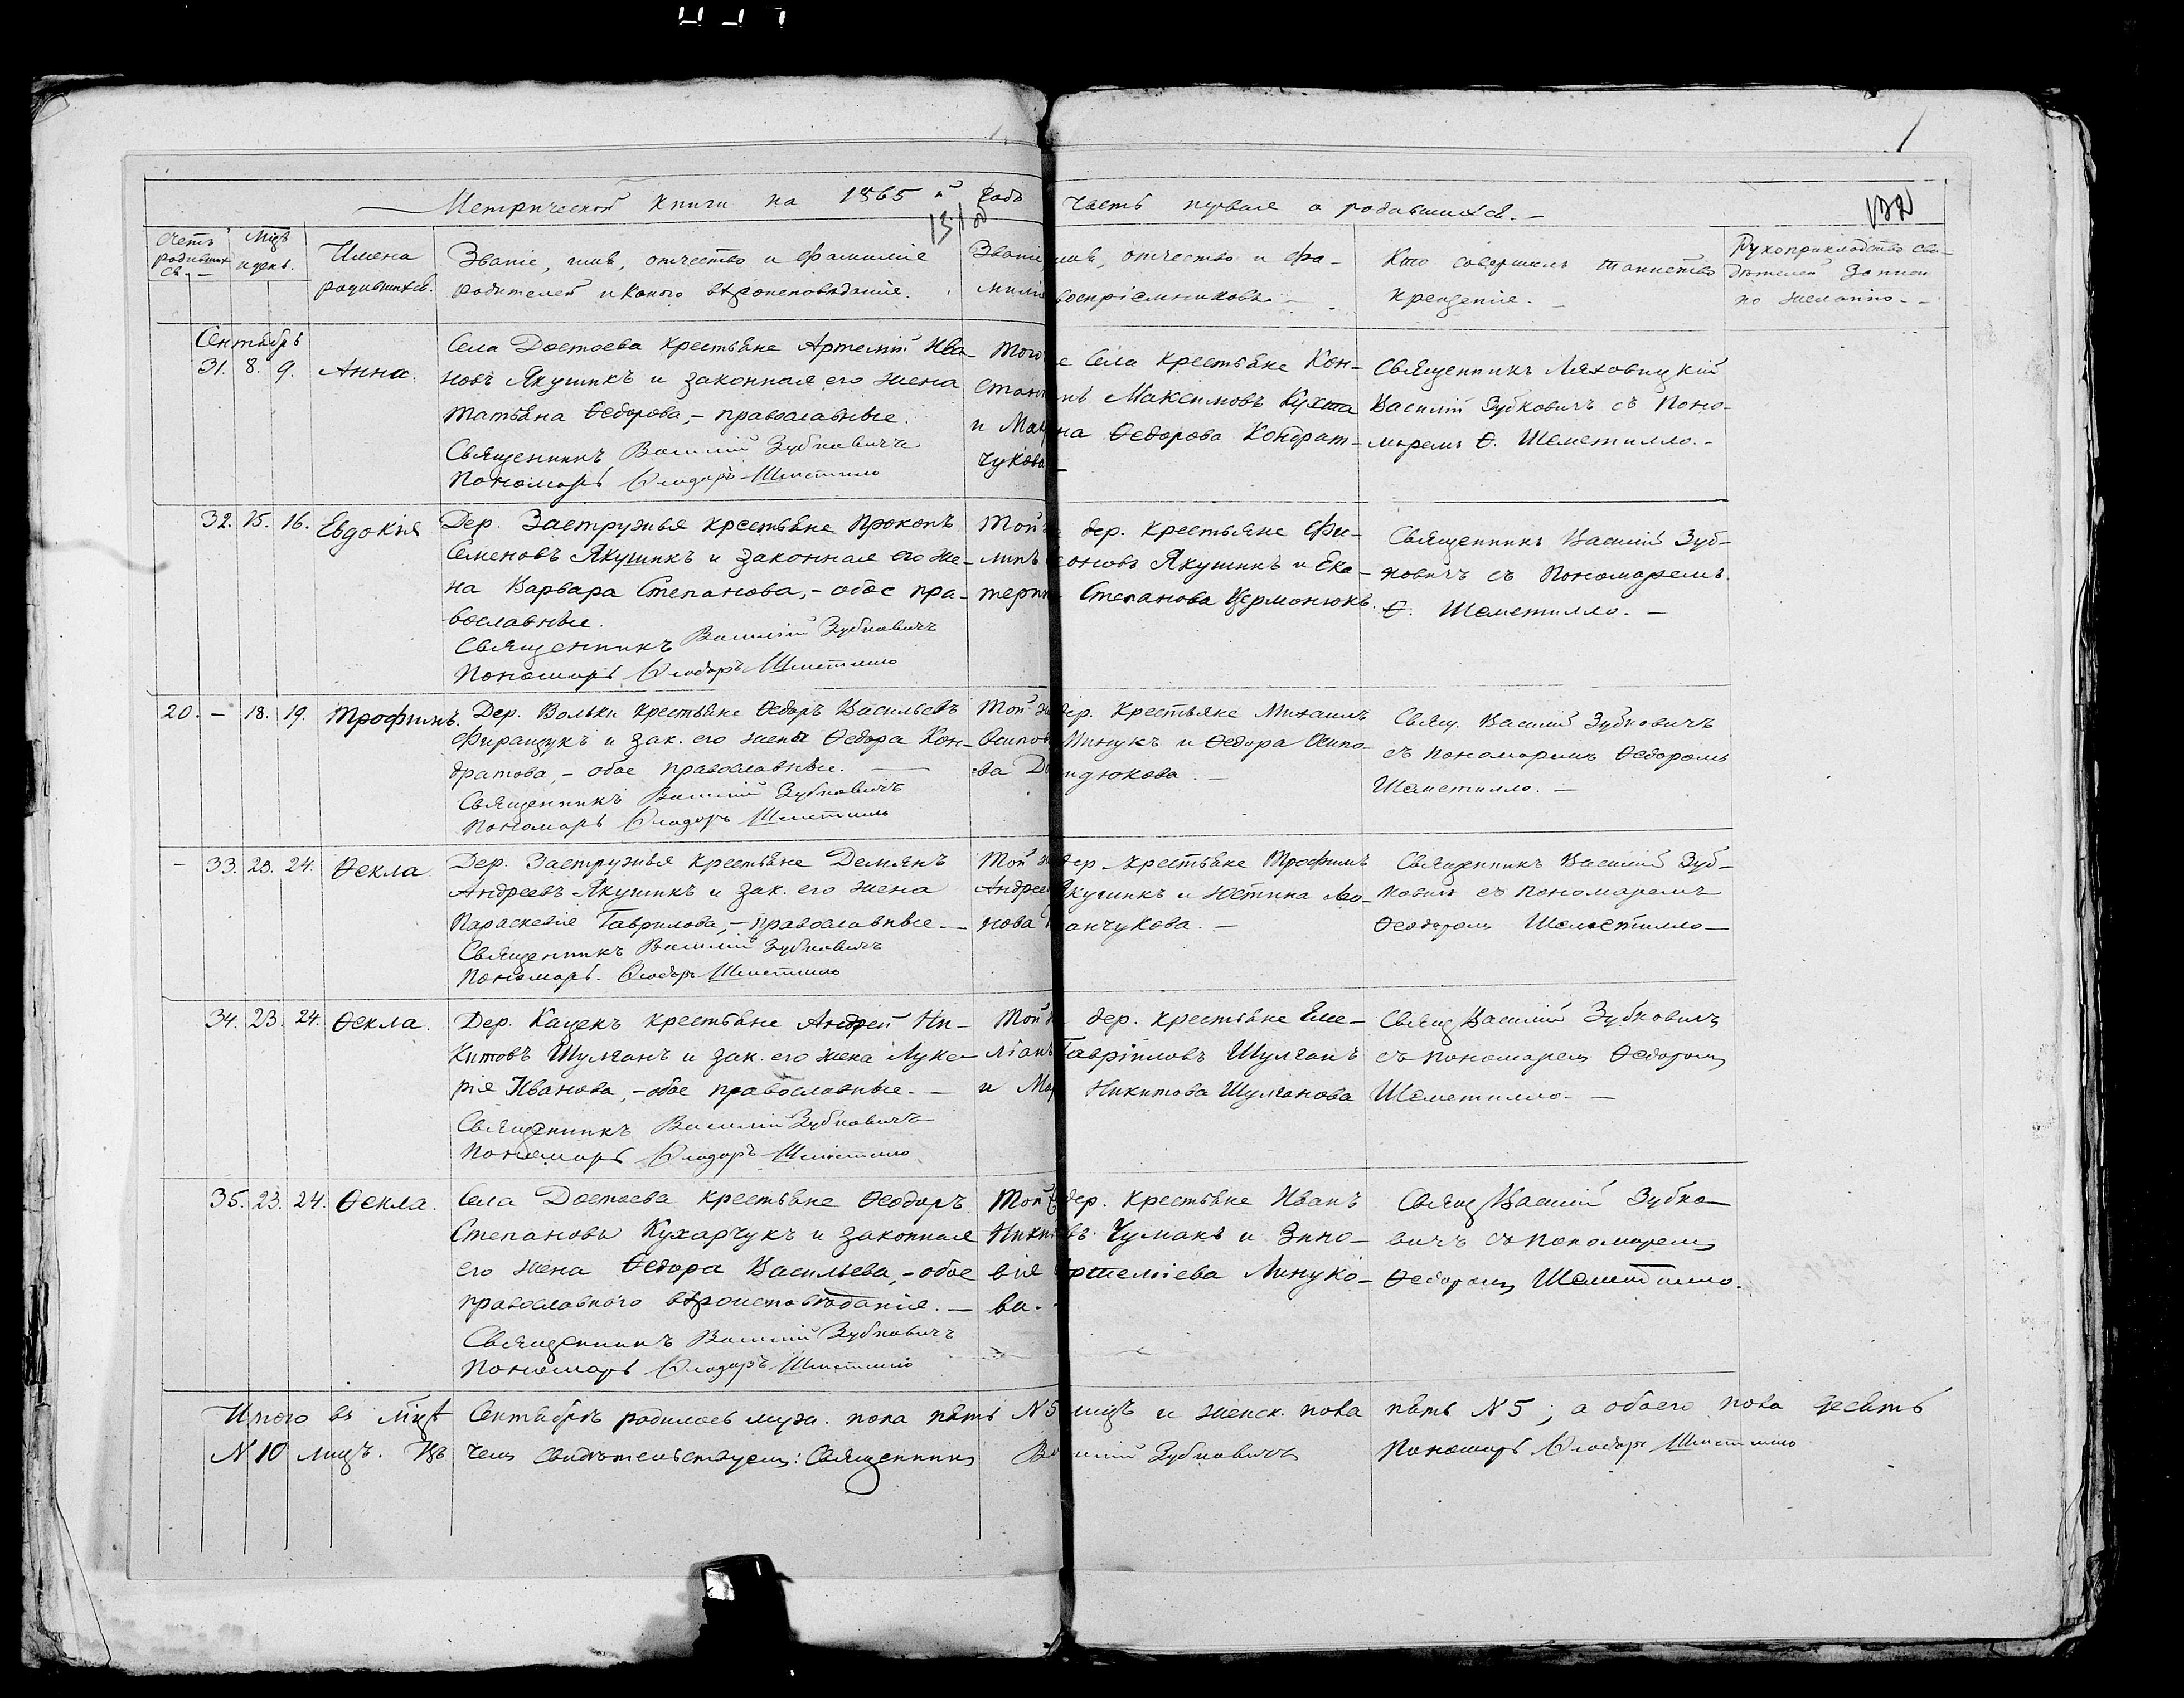 Метрической книги на 1865 й годъ часть первая о родившихся. —
131 об
132
Счетъ родившихся. —
Мцъ и день.
Имена родившихся.
Званіе, имя, отчество и фамилія
родителей и какого вѣроисповѣданія.
Званіе имя, отчество и фа-
милія воспріемниковъ. —
Кто совершилъ таинство
крещенія. —
Рукоприкладство сви-
дѣтелей записи
по желанію. —
Сентябрь
31. 8. 9. Анна.
Села Достоева крестьяне Артемій Ива-
новъ Якушикъ и законная его жена
Татьяна Ѳедорова, — православные.
Священникъ Василій Зубковичъ
Пономарь Ѳеодоръ Шеметилло
Того е Села крестьяне Кон-
стан нъ Максимовъ Кухта
и Мар на Ѳедорова Кондрат-
чукова —
Священникъ Ляховицкій
Василій Зубковичъ съ Поно-
маремъ Ѳ. Шеметилло. -
32. 15. 16. Евдокія
Дер. Застружья крестьяне Прокопъ
Семеновъ Якушикъ и законная его же-
на Варвара Степанова, — обое пра-
вославные.
Священникъ Василій Зубковичъ
Пономарь Ѳеодоръ Шеметилло
Той дер. крестьяне Фи-
липъ оновъ Якушикъ и Ека-
терин Степанова Цермонюкъ.
Священникъ Василій Зуб-
ковичъ съ Пономаремъ
Ѳ. Шеметилло. —
20. — 18. 19. Трофимъ.
Дер. Вольки крестьяне Ѳедоръ Васильевъ
Фиранзукъ и зак. его жена Ѳедора Кон-
дратова, — обое православные. —
Священникъ Василій Зубковичъ
Пономарь Ѳеодоръ Шеметилло
Той ж дер. Крестьяне Михаилъ
Осипов Минукъ и Ѳедора Осипо-
ва Д идюкова. —
Свящ. Василій Зубковичъ
съ пономаремъ Ѳедоромъ
Шеметилло. —
— 33. 23. 24. Ѳекла
Дер. Застружья крестьяне Демянъ
Андреевъ Якушикъ и зак. его жена
Параскевія Гаврилова, — православные. —
Священникъ Василій Зубковичъ
Пономарь. Ѳеодоръ Шеметилло
Той ж дер. крестьяне Трофимъ
Андрее Якушикъ и Юстина Ло-
нова анчукова. —
Священникъ Василій Зуб-
ковичъ съ пономаремъ
Ѳеодоромъ Шеметилло —
34. 23. 24. Ѳекла.
Дер. Кацекъ крестьяне Андрей Ни-
китовъ Шулганъ и зак. его жена Луке-
рія Иванова, — обое православные. —
Священникъ Василій Зубковичъ
Пономарь Ѳеодоръ Шеметилло
Той ж дер. крестьяне Еме-
ліанъ Гавріиловъ Шулганъ
и Мар Никитова Шулганова
Свящ Василій Зубковичъ
съ пономаремъ Ѳедоромъ
Шеметилло. —
35. 23. 24. Ѳекла.
Села Достоева крестьяне Ѳеодоръ
Степановъ Кухарчукъ и законная
его жена Ѳедора Васильева, — обое
православнаго вѣроисповѣданія. —
Священникъ Василій Зубковичъ
Пономарь Ѳеодоръ Шеметилло
Той дер. крестьяне Иванъ
Никит въ Чумакъ и Зино-
вія Артеміева Минуко-
ва. -
Свящ Василій Зубко-
вичъ съ пономаремъ
Ѳедоромъ Шеметилло.
Итого въ мцѣ Сентябрѣ родилось муж. пола пять № 5 лицъ и женск. пола пять № 5; а обоего пола десять
№ 10 лицъ. Въ чемъ свидѣтельствуемъ: Священникъ Василій Зубковичъ Пономарь Ѳеодоръ Шеметилло